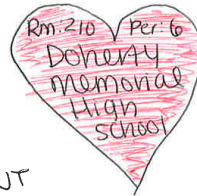 Rm: 210 Per: 6
Doherty
Memorial
High
School
NT